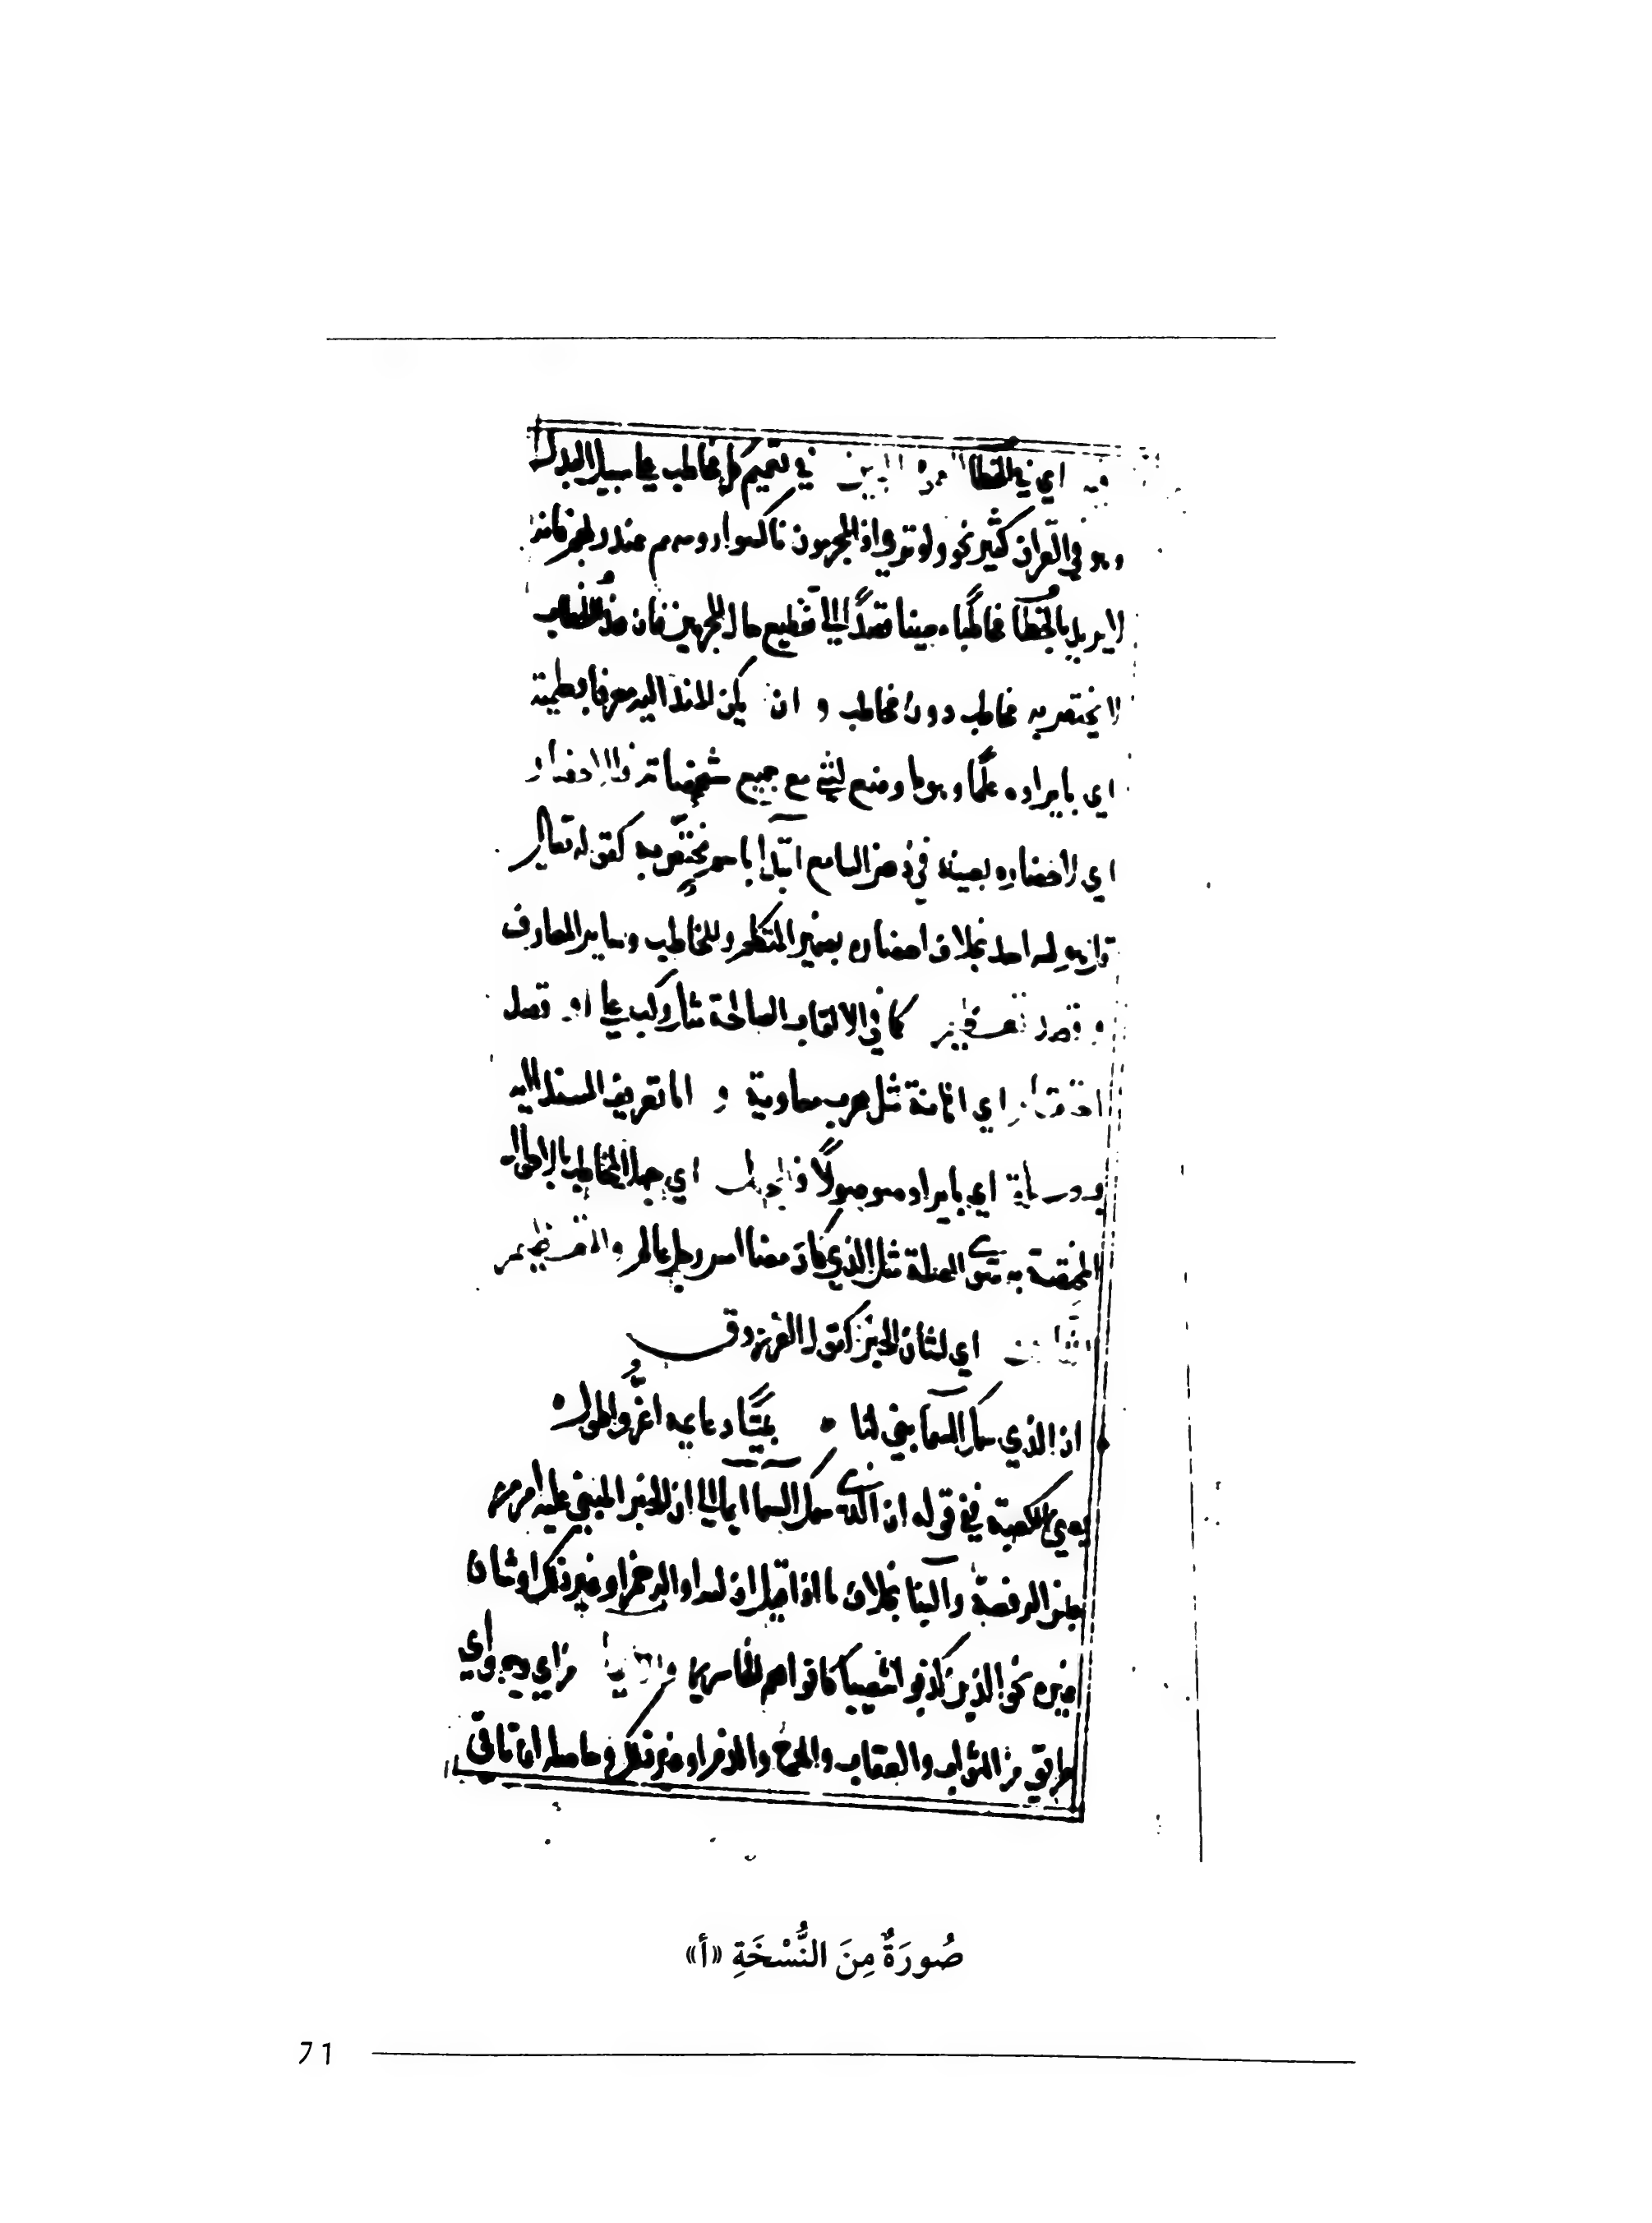 فيه اي في الخطا في تعميم كل مخاطب علي سبيل البدل
وهو في القران كثير نحو ولو تري اذ المجرمون ناكسوا روسهم عند ربهم فانه
لا يريد بالخطا مخاطبا معينا قصدا الي تفظيع حال المجرمين فان هذا الخطاب
لا يختص به مخاطب دون مخاطب و ان يكن المسند اليه معرفا بعلمية
اي بايراده علما وهو ما وضع لشي مع جميع مشخصاته فللاحضار
اي لاحضاره بعينه في ذهن السامع ابتدا باسم مختص به كقوله تعالي
قل هو الله احد بخلاف احضاره بضمير المتكلم والمخاطب وساير المعارف
و قصد تعظيم كما في الالقاب الصالحة مثل ركب علي او قصد
احتقار اي اهانة مثل هرب معاوية و اما تعريف المسند اليه
بموصولية اي بايراده موصولا فللجهل اي جهل المخاطب بالاحوال
المختصة به سوي الصلة مثل الذي كان معنا امس رجل عالم والتعظيم
للشان اي لشان الخبر كقول الفرزدق
ان الذي سمك السما بني لنا ه بيتا دعايمه اعز واطول ه
يعني الكعبة ففي قوله ان الذي سمك السما ايما الي ان الخبر المبني عليه امر من
جنس الرفعة والبنا بخلاف ما اذا قيل ان الله او الرحمن او غير ذلك او شان
غيره نحو الذين كذبوا شعيبا كانوا هم الخاسرين والايما من اي وجه واي
طريق من الثواب والعقاب والمدح والذم او غير ذلك وحاصله ان تاتي
صُورَةٌ مِنَ النُّسْخَةِ «أ»
71